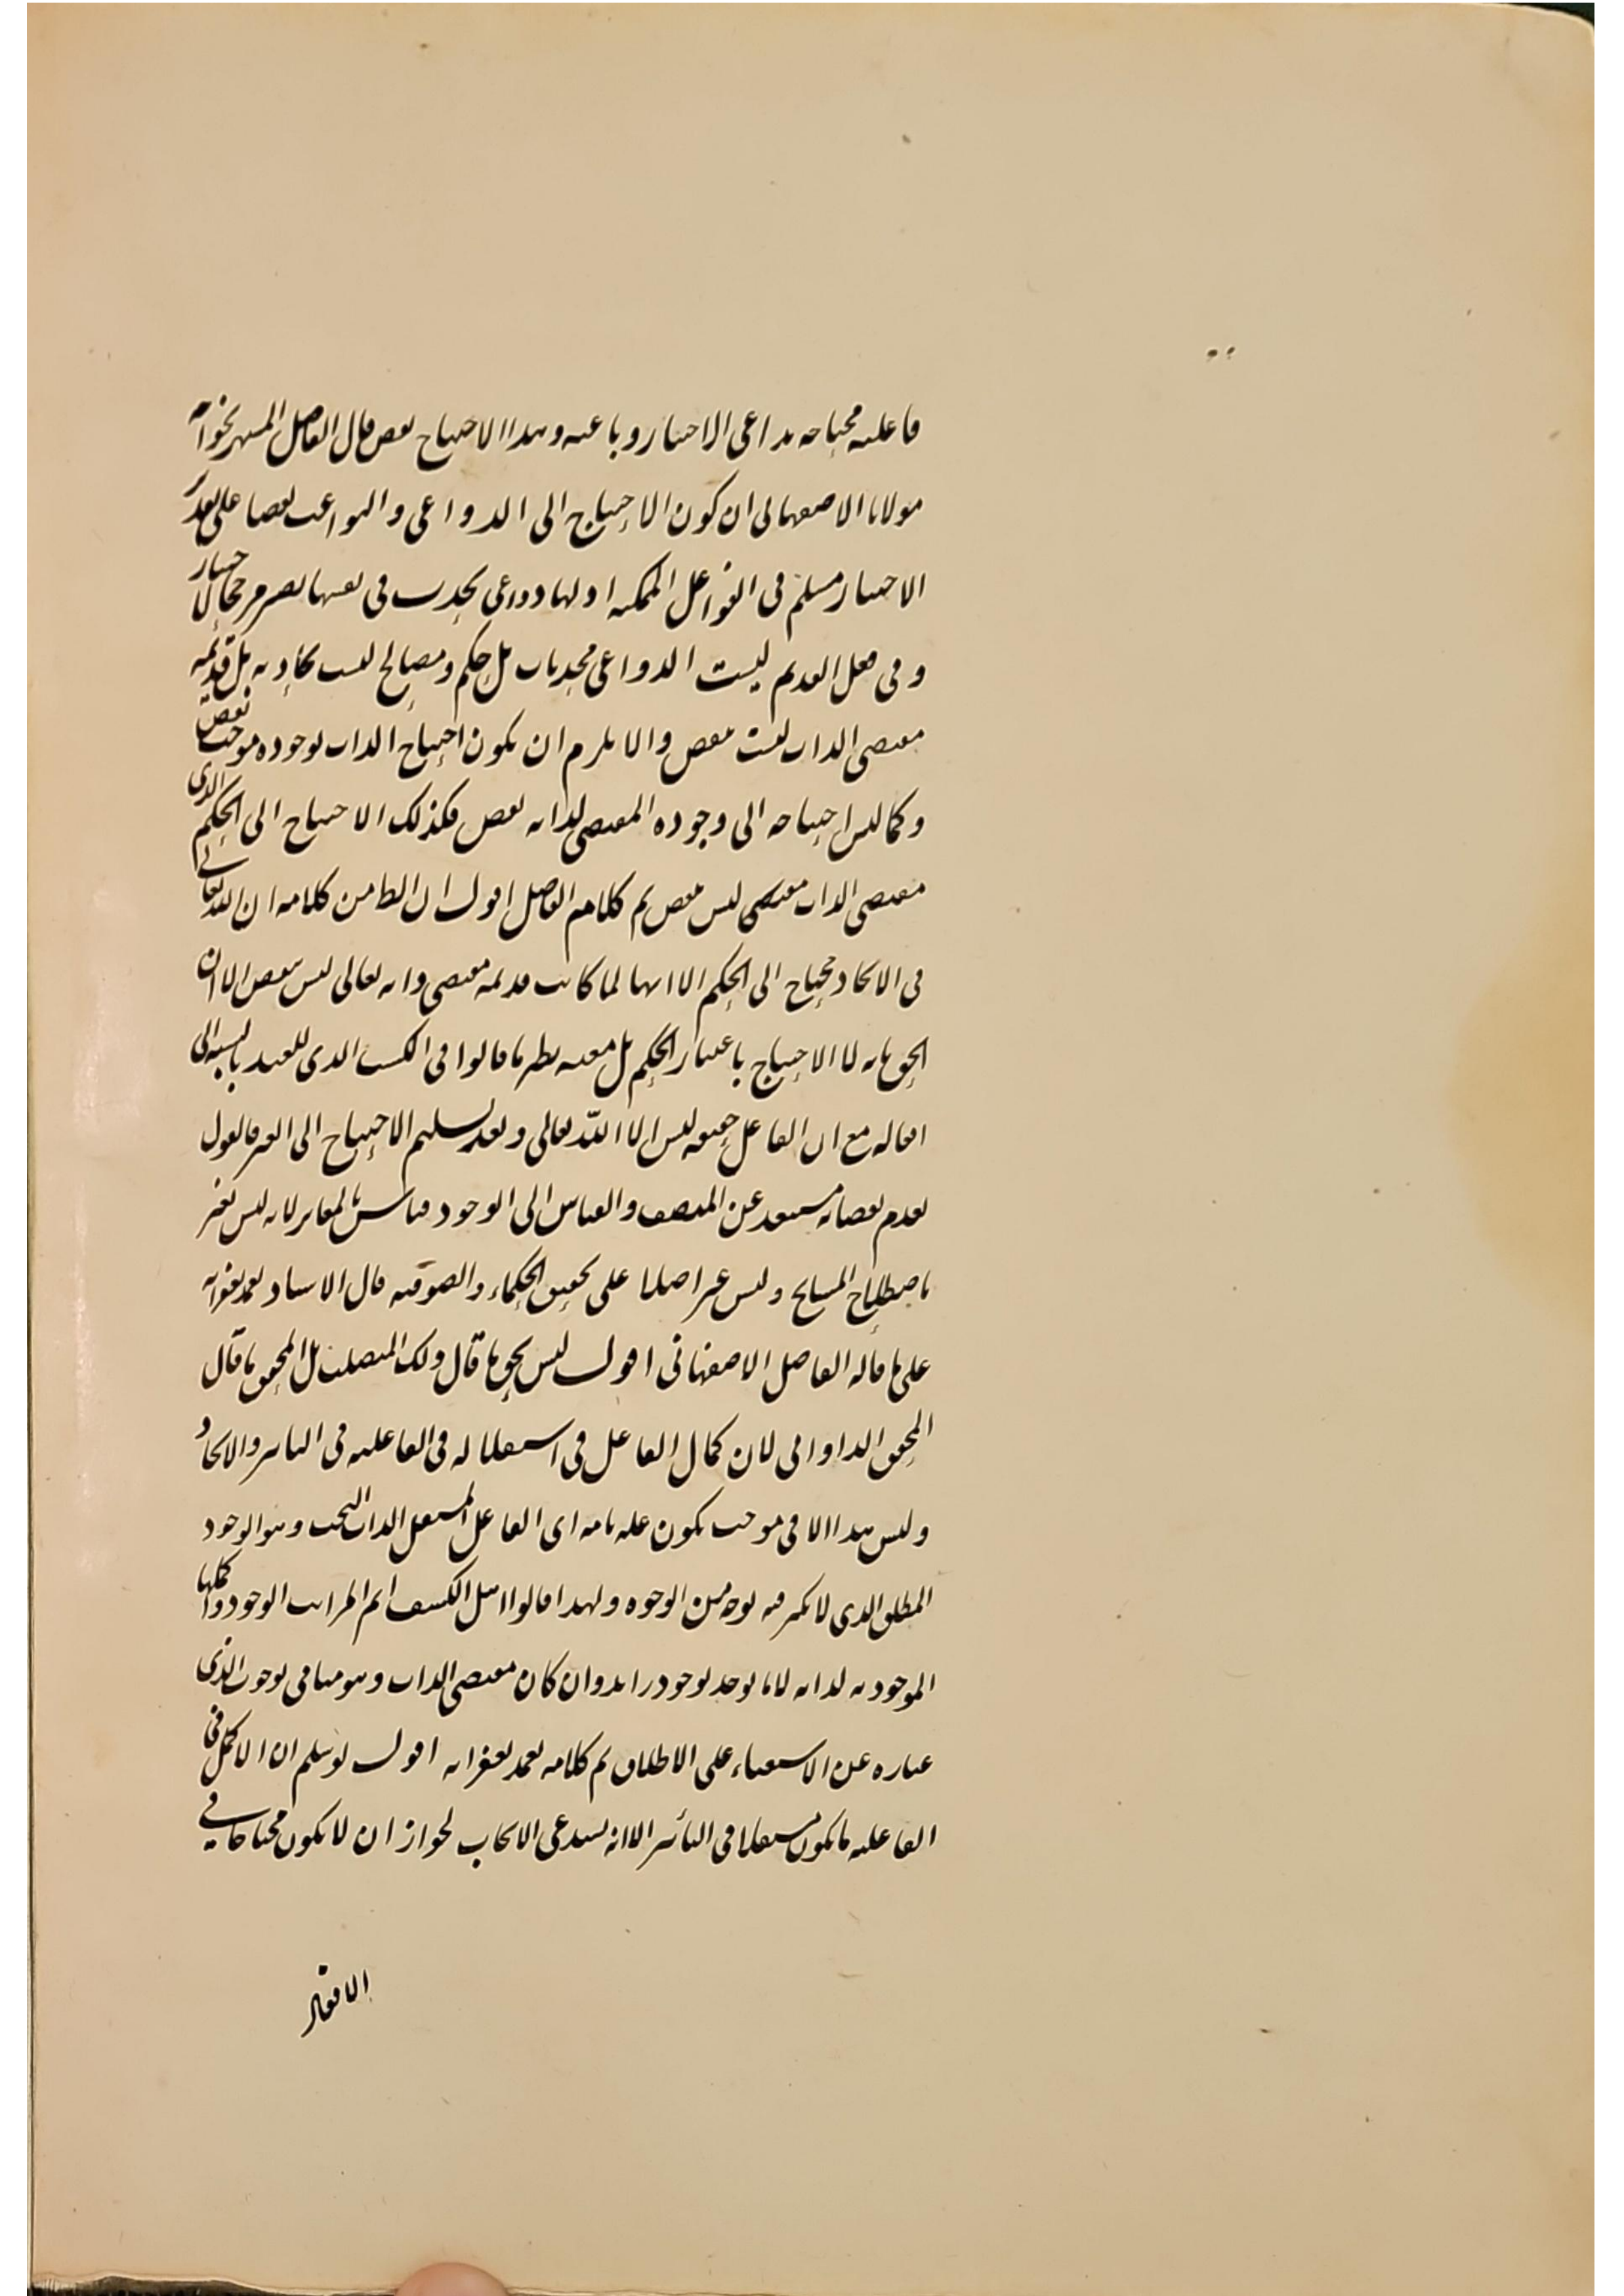 فاعليه محتاجه بداعى الاختيار وباعثه وهذا الاحتياج نقص قال الفاضل المشهر بخواجه
مولانا الاصفهانى ان كون الاحتياج الى الدواعى والبواعث نقصا على تقدير
الاختيار مسلم فى الفواعل الممكنه اذ لها دواعى يحدث فى نفسها يصير مرجحا لاختيار
وفى فعل القديم ليست الدواعى محدثات بل حكم ومصالح ليست بحادثه بل قديمة
مقتضى الذات ليست بنقص والا يلزم ان يكون احتياج الذات لوجوده موجب نقص
وكما ليس احتياجه الى وجوده المقتضى لذاته نقص فكذلك الاحتياج الى الحكم الذى
مقتضى الذات مقتضى ليس بنقص تم كلام الفاضل اقول ان الظا من كلامه ان الله تعالى
فى الايجاد محتاج الى الحكم الا انها لما كانت قديمه مقتضى ذاته تعالى ليس بنقص الا ان
الحق بانه لا الاحتياج باعتبار الحكم بل معيه نظير ما قالوا فى الكسب الذى للعبد بالنسبه الى
افعاله مع ان الفاعل حقيقه ليس الا الله تعالى وبعد تسليم الاحتياج الى الغير فالقول
بعدم نقصانه مستبعد عن المنصف والقياس الى الوجود قياس بالمغاير لانه ليس بغير
باصطلاح المشايخ وليس غير اصلا على تحقيق الحكماء والصوفيه قال الاستاد تغمد بغفرانه
على ما قاله الفاضل الاصفهانى اقول ليس بحق ما قال ولك المتصلف بل المحقق ما قال
المحقق الدوانى لان كمال الفاعل فى استقلاله فى الفاعليه فى التاثير والايجاد
وليس هذا الا فى موجب يكون عله تامه اى الفاعل المستقل الذات البحت وهو الوجود
المطلق الذى لا تكثر فيه بوجه من الوجوه ولهذا قالوا اهل الكشف اتم المراتب الوجود واكملها
الموجوديه لذاته لا ما يوجد بوجود زايد وان كان مقتضى الذات وهو منافى لوجوب الذى
عباره عن الاستغناء على الاطلاق تم كلامه تغمد بغفرانه اقول لو سلم ان الاكمل فى
الفاعليه ما يكون مستقلا فى التأثير الا انه يستدعى الايجاب لجواز ان لا يكون محتاجا فى